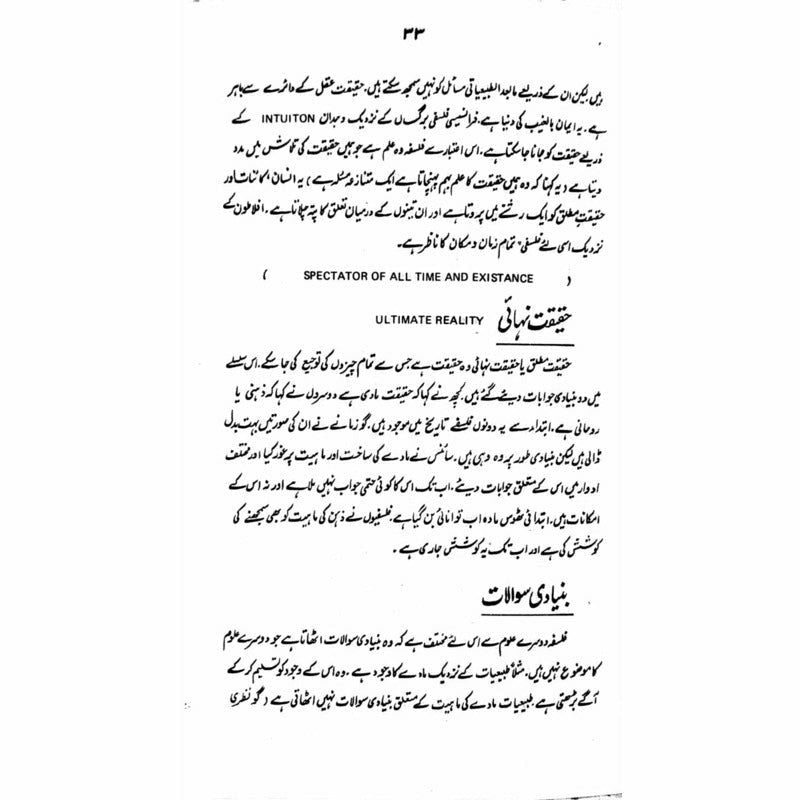 ۳۳
ہیں لیکن ان کے ذریعے مابعد الطبیعیاتی مسائل کو نہیں سمجھ سکتے ہیں۔ حقیقت عقل کے دائرے سے باہر
ہے۔ یہ ایمان بالغیب کی دنیا ہے۔ فرانسیسی فلسفی برگساں کے نزدیک وجدان INTUITON کے
ذریعے حقیقت کو جانا جاسکتا ہے۔ اس اعتبار سے فلسفہ وہ علم ہے جو ہمیں حقیقت کی تلاش میں مدد
دیتا ہے (یہ کہنا کہ وہ ہمیں حقیقت کا علم بہم پہنچاتا ہے ایک متنازعہ مسئلہ ہے) یہ انسان، کائنات اور
حقیقت مطلق کو ایک رشتے میں پروتا ہے اور ان تینوں کے درمیان تعلق کا پتہ چلاتا ہے۔ افلاطون کے
نزدیک اسی لئے فلسفی "تمام زمان و مکان کا ناظر ہے۔
( SPECTATOR OF ALL TIME AND EXISTANCE )
حقیقت نہائی ULTIMATE REALITY
حقیقت مطلق یا حقیقت نہائی وہ حقیقت ہے جس سے تمام چیزوں کی توجیع کی جاسکے۔ اس سلسلے
میں دو بنیادی جوابات دیئے گئے ہیں۔ کچھ نے کہا کہ حقیقت مادی ہے دوسروں نے کہا کہ ذہنی یا
روحانی ہے۔ ابتداء سے یہ دونوں فلسفے تاریخ میں موجود ہیں۔ گو زمانے نے ان کی صورتیں بہت بدل
ڈالی ہیں لیکن بنیادی طور پر وہ وہی ہیں۔ سائنس نے مادے کی ساخت اور ماہیت پر غور کیا اور مختلف
ادوار میں اس کے متعلق جوابات دیئے۔ اب تک اس کا کوئی حتمی جواب نہیں ملا ہے اور نہ اس کے
امکانات ہیں۔ ابتدائی ٹھوس مادہ اب توانائی بن گیا ہے۔ فلسفیوں نے ذہن کی ماہیت کو بھی سمجھنے کی
کوشش کی ہے اور اب تک یہ کوشش جاری ہے۔
بنیادی سوالات
فلسفہ دوسرے علوم سے اس لئے مختلف ہے کہ وہ بنیادی سوالات اٹھاتا ہے جو دوسرے علوم
کا موضوع نہیں ہیں۔ مثلاً طبیعیات کے نزدیک مادے کا وجود ہے۔ وہ اس کے وجود کو تسلیم کرکے
آگے بڑھتی ہے۔ طبیعیات مادے کی ماہیت کے متعلق بنیادی سوالات نہیں اٹھاتی ہے (گو نظری